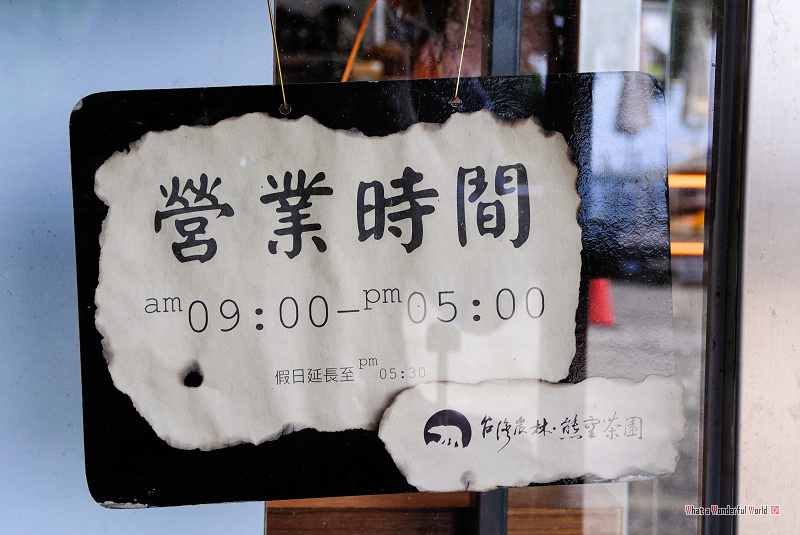 營業時間
am09:00-pm05:00
假日延長至pm05:30
台灣農林·熊空茶園
What a Wonderful World